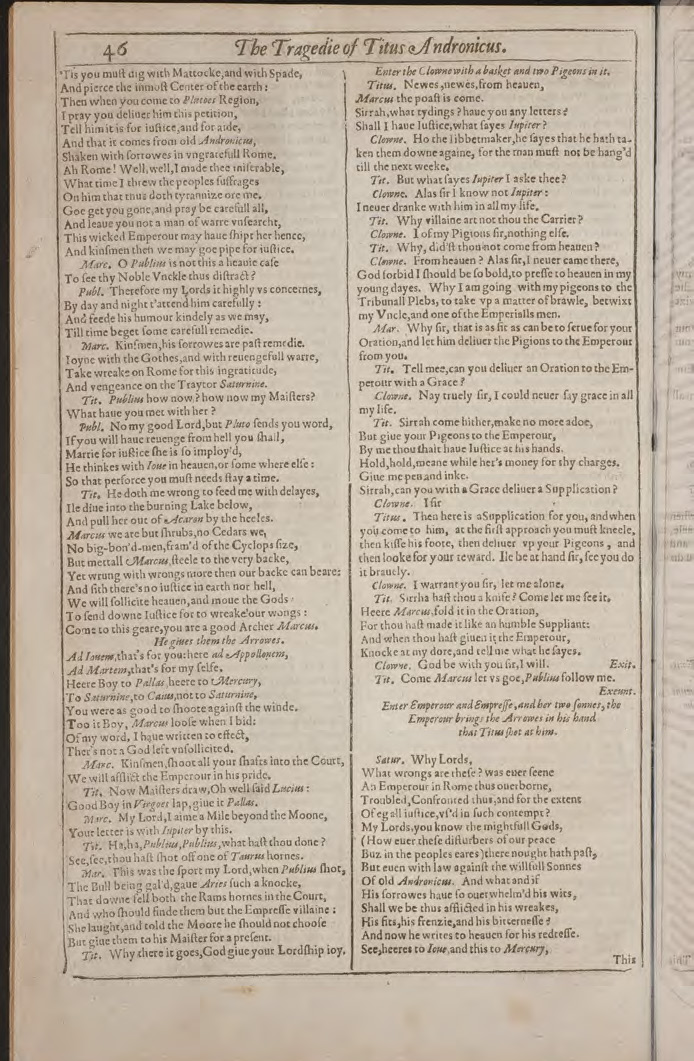 46
The Tragedie of Titus Andronicus.
'Tis you muſt dig with Mattocke,and with Spade,
And pierce the inmoſt Center of the earth:
Then when you come to Plutoes Region,
I pray you deliuer him this petition,
Tell him it is for iuſtice,and for aide,
And that it comes from old Andronicus,
Shaken with ſorrowes in vngratefull Rome.
Ah Rome! Well,well,I made thee miſerable,
What time I threw the peoples ſuffrages
On him that thus doth tyrannize ore me.
Goe get you gone,and pray be carefull all,
And leaue you not a man of warre vnſearcht,
This wicked Emperour may haue ſhipt her hence,
And kinſmen then we may goe pipe for iuſtice.
Marc. O Publius is not this a heauie caſe
To ſee thy Noble Vnckle thus diſtract?
Publ. Therefore my Lords it highly vs concernes,
By day and night t'attend him carefully:
And feede his humour kindely as we may,
Till time beget ſome carefull remedie.
Marc. Kinſmen,his ſorrowes are paſt remedie.
Ioyne with the Gothes,and with reuengefull warre,
Take wreake on Rome for this ingratitude,
And vengeance on the Traytor Saturnine.
Tit. Publius how now? how now my Maiſters?
What haue you met with her?
Publ. No my good Lord,but Pluto ſends you word,
If you will haue reuenge from hell you ſhall,
Marrie for iuſtice ſhe is ſo imploy'd,
He thinkes with Ioue in heauen,or ſome where elſe:
So that perforce you muſt needs ſtay a time.
Tit. He doth me wrong to feed me with delayes,
Ile diue into the burning Lake below,
And pull her out of Acaron by the heeles.
Marcus we are but ſhrubs,no Cedars we,
No big-bon'd-men,fram'd of the Cyclops ſize,
But mettall Marcus,ſteele to the very backe,
Yet wrung with wrongs more then our backe can beare:
And ſith there's no iuſtice in earth nor hell,
We will ſollicite heauen,and moue the Gods
To ſend downe Iuſtice for to wreake our wongs:
Come to this geare,you are a good Archer Marcus.
He giues them the Arrowes.
Ad Iouem,that's for you:here ad Appollonem,
Ad Martem,that's for my ſelfe.
Heere Boy to Pallas,heere to Mercury,
To Saturnine,to Caius,not to Saturnine,
You were as good to ſhoote againſt the winde.
Too it Boy, Marcus looſe when I bid:
Of my word, I haue written to effect,
Ther's not a God left vnſollicited.
Marc. Kinſmen,ſhoot all your ſhafts into the Court,
We will afflict the Emperour in his pride.
Tit. Now Maiſters draw,Oh well ſaid Lucius:
Good Boy in Virgoes lap,giue it Pallas.
Marc. My Lord,I aime a Mile beyond the Moone,
Your letter is with Iupiter by this.
Tit. Ha,ha,Publius,Publius,what haſt thou done?
See,ſee,thou haſt ſhot off one of Taurus hornes.
Mar. This was the ſport my Lord,when Publius ſhot,
The Bull being gal'd,gaue Aries ſuch a knocke,
That downe fell both the Rams hornes in the Court,
And who ſhould finde them but the Empreſſe villaine:
She laught,and told the Moore he ſhould not chooſe
But giue them to his Maiſter for a preſent.
Tit. Why there it goes,God giue your Lordſhip ioy.
Enter the Clowne with a basket and two Pigeons in it.
Titus. Newes,newes,from heauen,
Marcus the poaſt is come.
Sirrah,what tydings? haue you any letters?
Shall I haue Iuſtice,what ſayes Iupiter?
Clowne. Ho the Iibbetmaker,he ſayes that he hath ta-
ken them downe againe, for the man muſt not be hang'd
till the next weeke.
Tit. But what ſayes Iupiter I aske thee?
Clowne. Alas ſir I know not Iupiter:
I neuer dranke with him in all my life.
Tit. Why villaine art not thou the Carrier?
Clowne. I of my Pigions ſir,nothing elſe.
Tit. Why, did'ſt thou not come from heauen?
Clowne. From heauen? Alas ſir,I neuer came there,
God forbid I ſhould be ſo bold,to preſſe to heauen in my
young dayes. Why I am going with my pigeons to the
Tribunall Plebs, to take vp a matter of brawle, betwixt
my Vncle,and one of the Emperialls men.
Mar. Why ſir, that is as fit as can be to ſerue for your
Oration,and let him deliuer the Pigions to the Emperour
from you.
Tit. Tell mee,can you deliuer an Oration to the Em-
perour with a Grace?
Clowne. Nay truely ſir, I could neuer ſay grace in all
my life.
Tit. Sirrah come hither,make no more adoe,
But giue your Pigeons to the Emperour,
By me thou ſhalt haue Iuſtice at his hands.
Hold,hold,meane while her's money for thy charges.
Giue me pen and inke.
Sirrah,can you with a Grace deliuer a Supplication?
Clowne. I ſir
Titus. Then here is a Supplication for you, and when
you come to him, at the firſt approach you muſt kneele,
then kiſſe his foote, then deliuer vp your Pigeons, and
then looke for your reward. Ile be at hand ſir, ſee you do
it brauely.
Clowne. I warrant you ſir, let me alone.
Tit. Sirrha haſt thou a knife? Come let me ſee it,
Heere Marcus,fold it in the Oration,
For thou haſt made it like an humble Suppliant:
And when thou haſt giuen it the Emperour,
Knocke at my dore,and tell me what he ſayes.
Clowne. God be with you ſir,I will. Exit.
Tit. Come Marcus let vs goe,Publius follow me.
Exeunt.
Enter Emperour and Empreſſe,and her two ſonnes,the
Emperour brings the Arrowes in his hand
that Titus ſhot at him.
Satur. Why Lords,
What wrongs are theſe? was euer ſeene
An Emperour in Rome thus ouerborne,
Troubled,Confronted thus,and for the extent
Of egall iuſtice,vſ'd in ſuch contempt?
My Lords,you know the mightfull Gods,
(How euer theſe diſturbers of our peace
Buz in the peoples eares)there nought hath paſt,
But euen with law againſt the willfull Sonnes
Of old Andronicus. And what and if
His ſorrowes haue ſo ouerwhelm'd his wits,
Shall we be thus afflicted in his wreakes,
His fits,his frenzie,and his bitterneſſe?
And now he writes to heauen for his redreſſe.
See,heeres to Ioue,and this to Mercury,
This